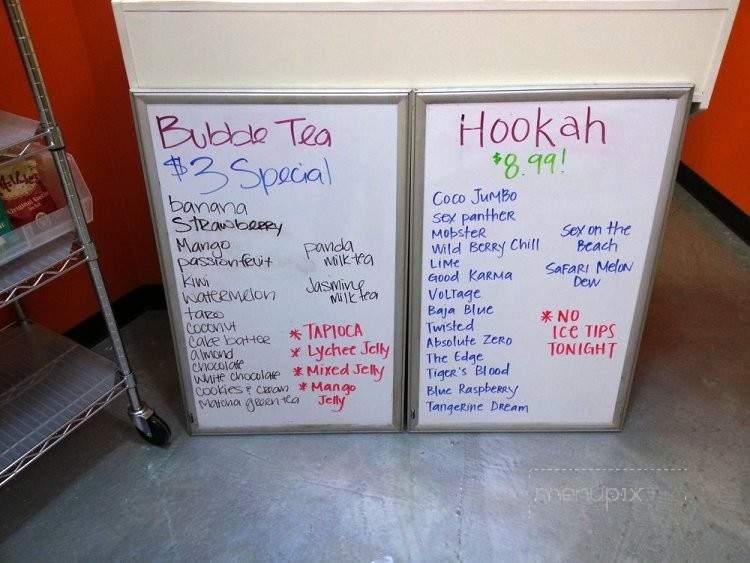 Bubble Tea
$3 Special
banana
Strawberry
Mango
passionfruit
kiwi
watermelon
taro
coconut
cake batter
almond
chocolate
white chocolate
cookies & cream
Matcha green tea
panda
milk tea
Jasmine
milk tea
* TAPIOCA
* Lychee Jelly
* Mixed Jelly
* Mango
Jelly
Hookah
$8.99!
Coco Jumbo
Sex panther
Mobster
Wild Berry Chill
Lime
Good Karma
Voltage
Baja Blue
Twisted
Absolute Zero
The Edge
Tiger's Blood
Blue Raspberry
Tangerine Dream
Sex on the
Beach
Safari Melon
Dew
* NO
ICE TIPS
TONIGHT
Original
menupix